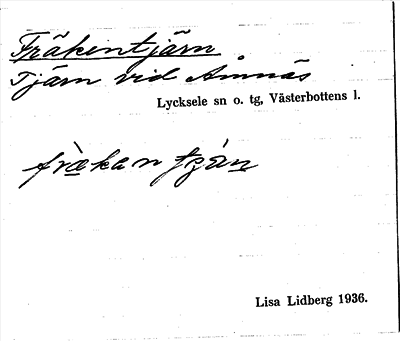 Fräkentjärn
Tjärn vid Åmnäs
Lycksele sn o. tg, Västerbottens l.
fræ̀kan
Lisa Lidberg 1936.